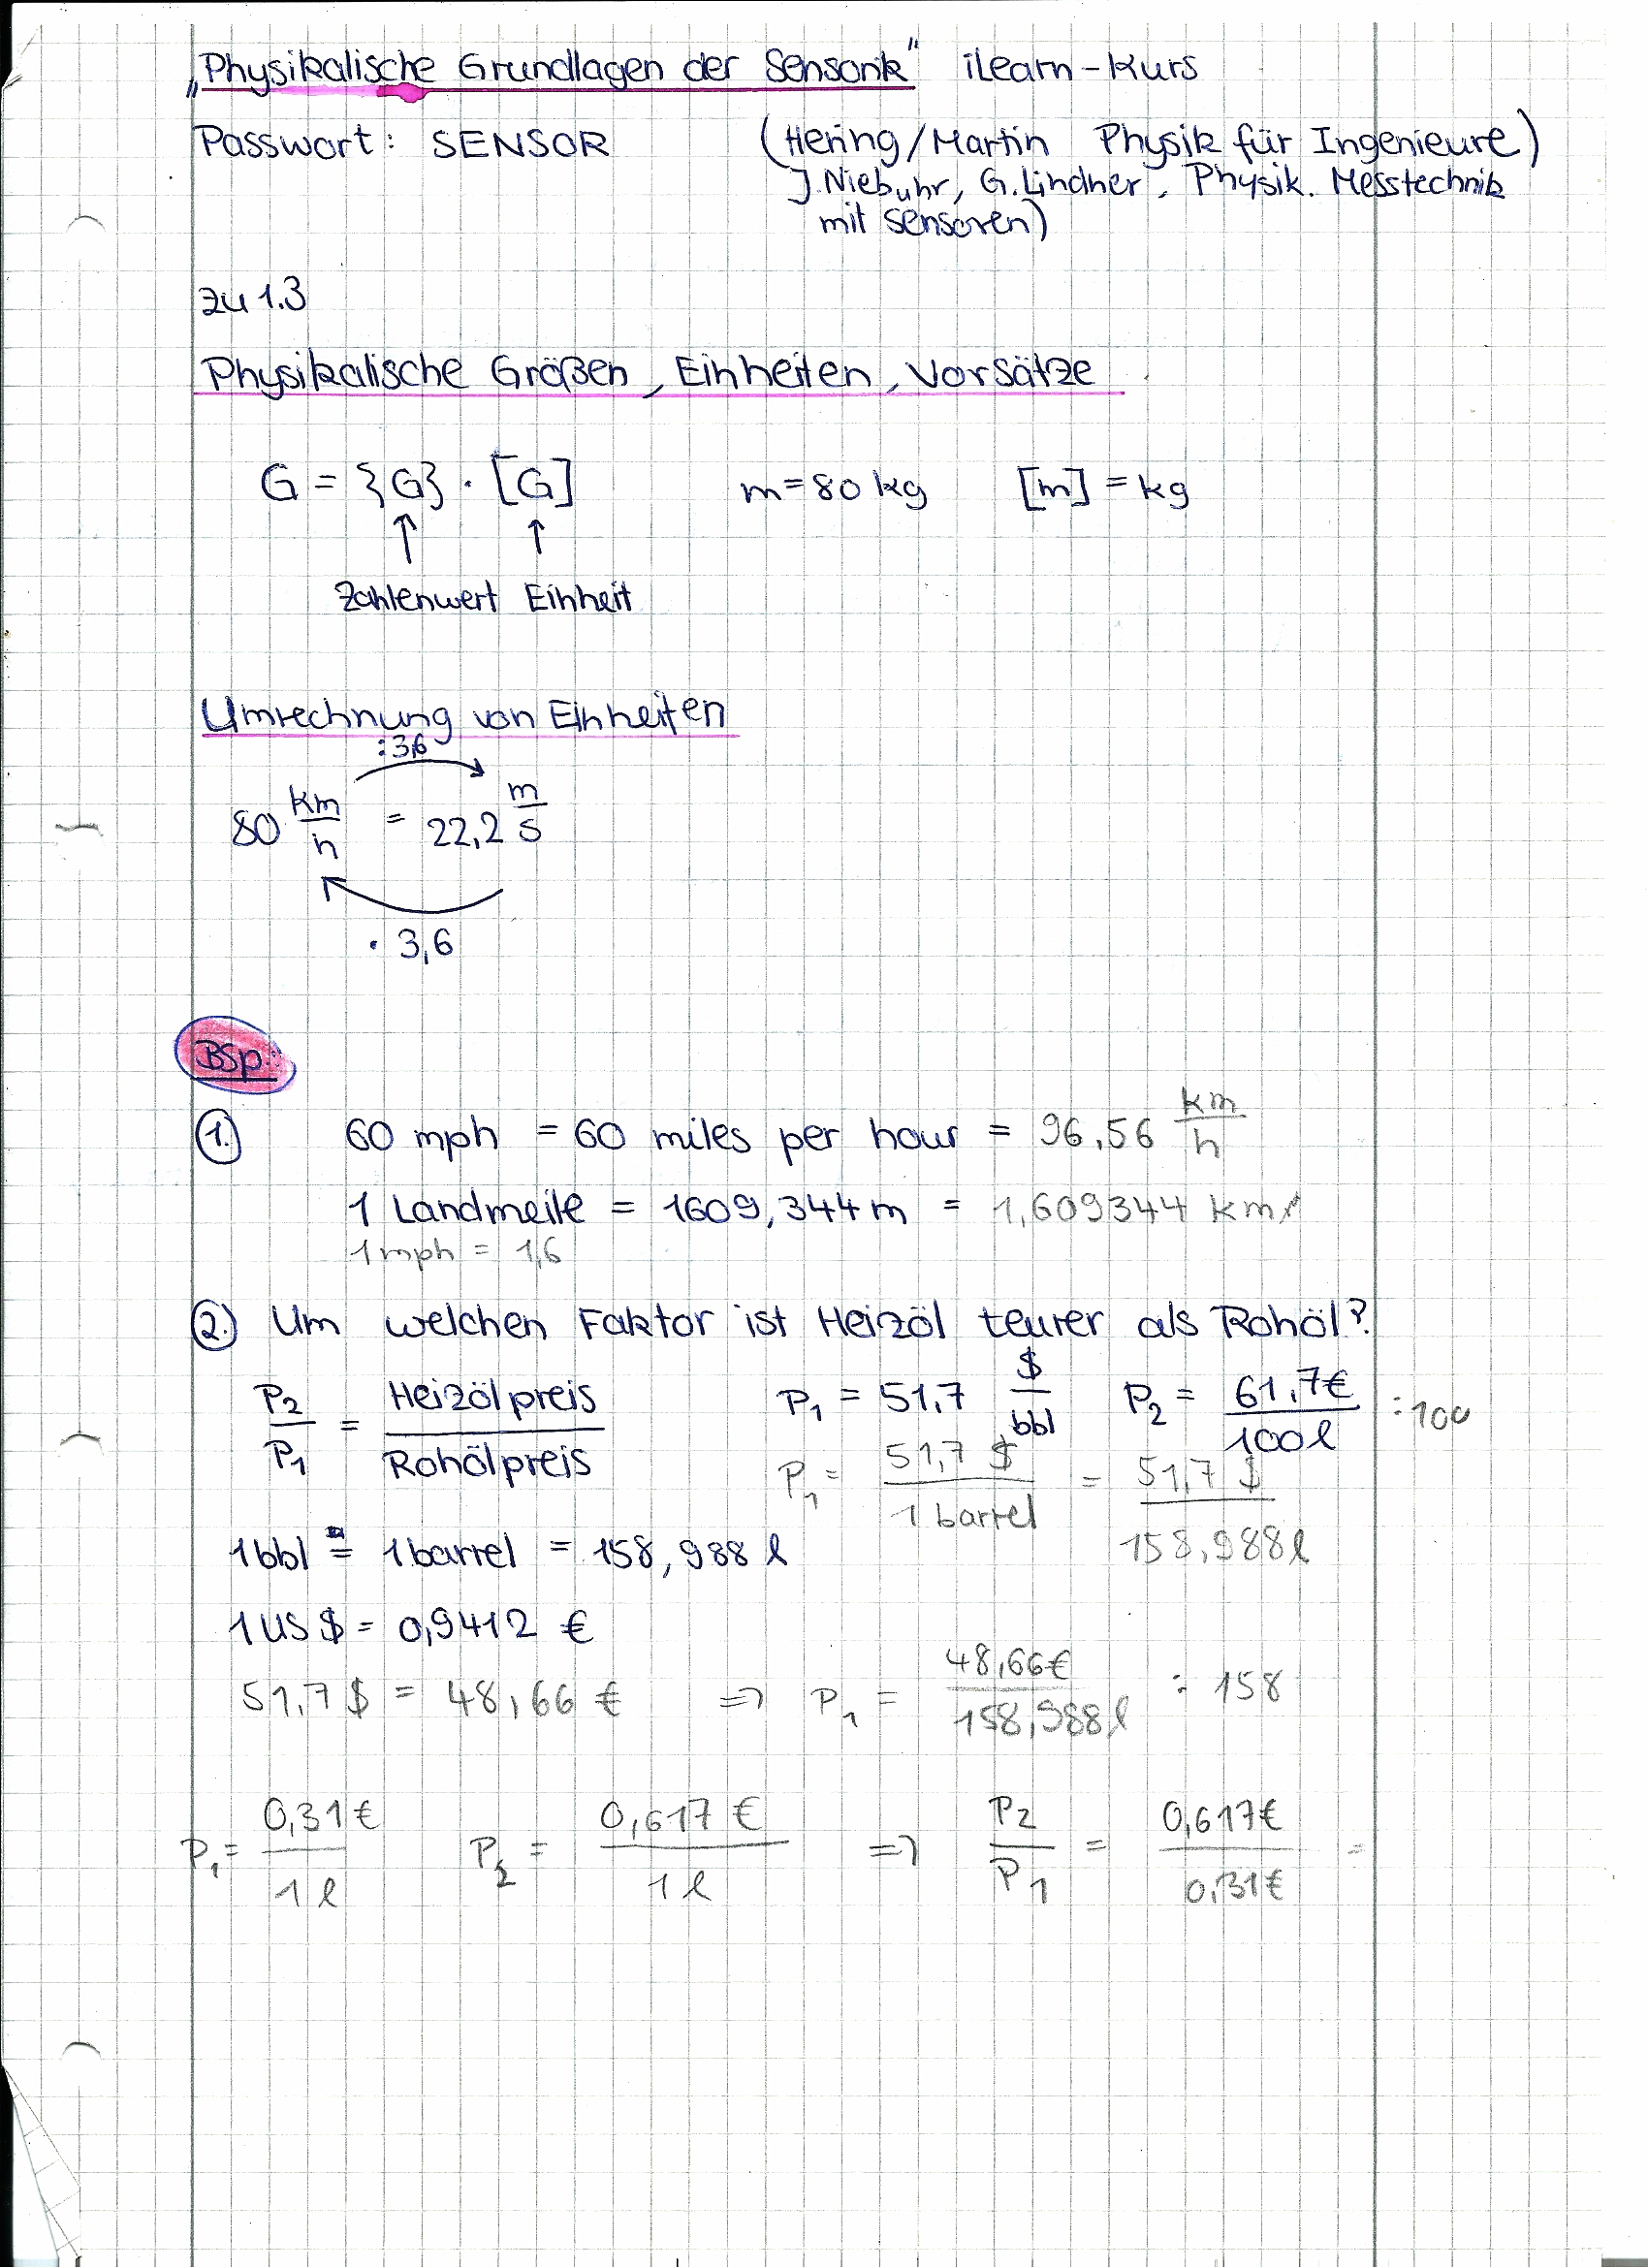 „Physikalische Grundlagen der Sensorik" iLearn-Kurs
Passwort: SENSOR (Hering/Martin Physik für Ingenieure)
J. Niebuhr, G. Lindner, Physik. Messtechnik
mit Sensoren)
zu 1.3
Physikalische Größen, Einheiten, Vorsätze
G = {G} · [G] m = 80 kg [m] = kg
↑ ↑
Zahlenwert Einheit
Umrechnung von Einheiten
:3,6
80 km/h = 22,2 m/s
· 3,6
Bsp.:
1.) 60 mph = 60 miles per hour = 96,56 km/h
1 Landmeile = 1609,344 m = 1,609344 km
1 mph = 1,6
2.) Um welchen Faktor ist Heizöl teurer als Rohöl?
P2/P1 = Heizölpreis/Rohölpreis P1 = 51,7 $/bbl P2 = 61,7€/100l :100
P1 = 51,7 $/1 barrel = 51,7 $/158,988l
1bbl = 1barrel = 158,988 l
1 US $ = 0,9412 €
51,7 $ = 48,66 € => P1 = 48,66€/158,988l : 158
P1 = 0,31€/1 l P2 = 0,617 €/1 l => P2/P1 = 0,617€/0,31€ =